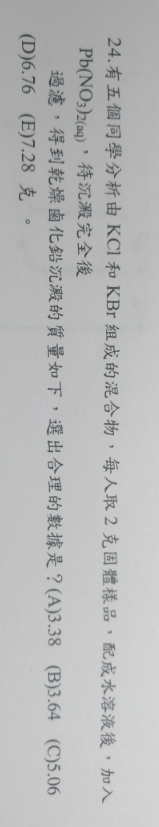 24.有五個同學分析由 KCl 和 KBr 組成的混合物，每人取 2 克固體樣品，配成水溶液後，加入
Pb(NO₃)₂₍ₐq₎，待沉澱完全後
過濾，得到乾燥鹵化鉛沉澱的質量如下，選出合理的數據是？(A)3.38 (B)3.64 (C)5.06
(D)6.76 (E)7.28 克。